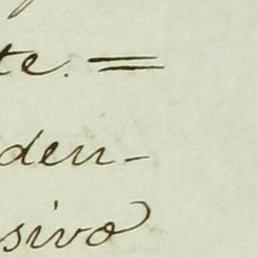 te. =
den-
sivo